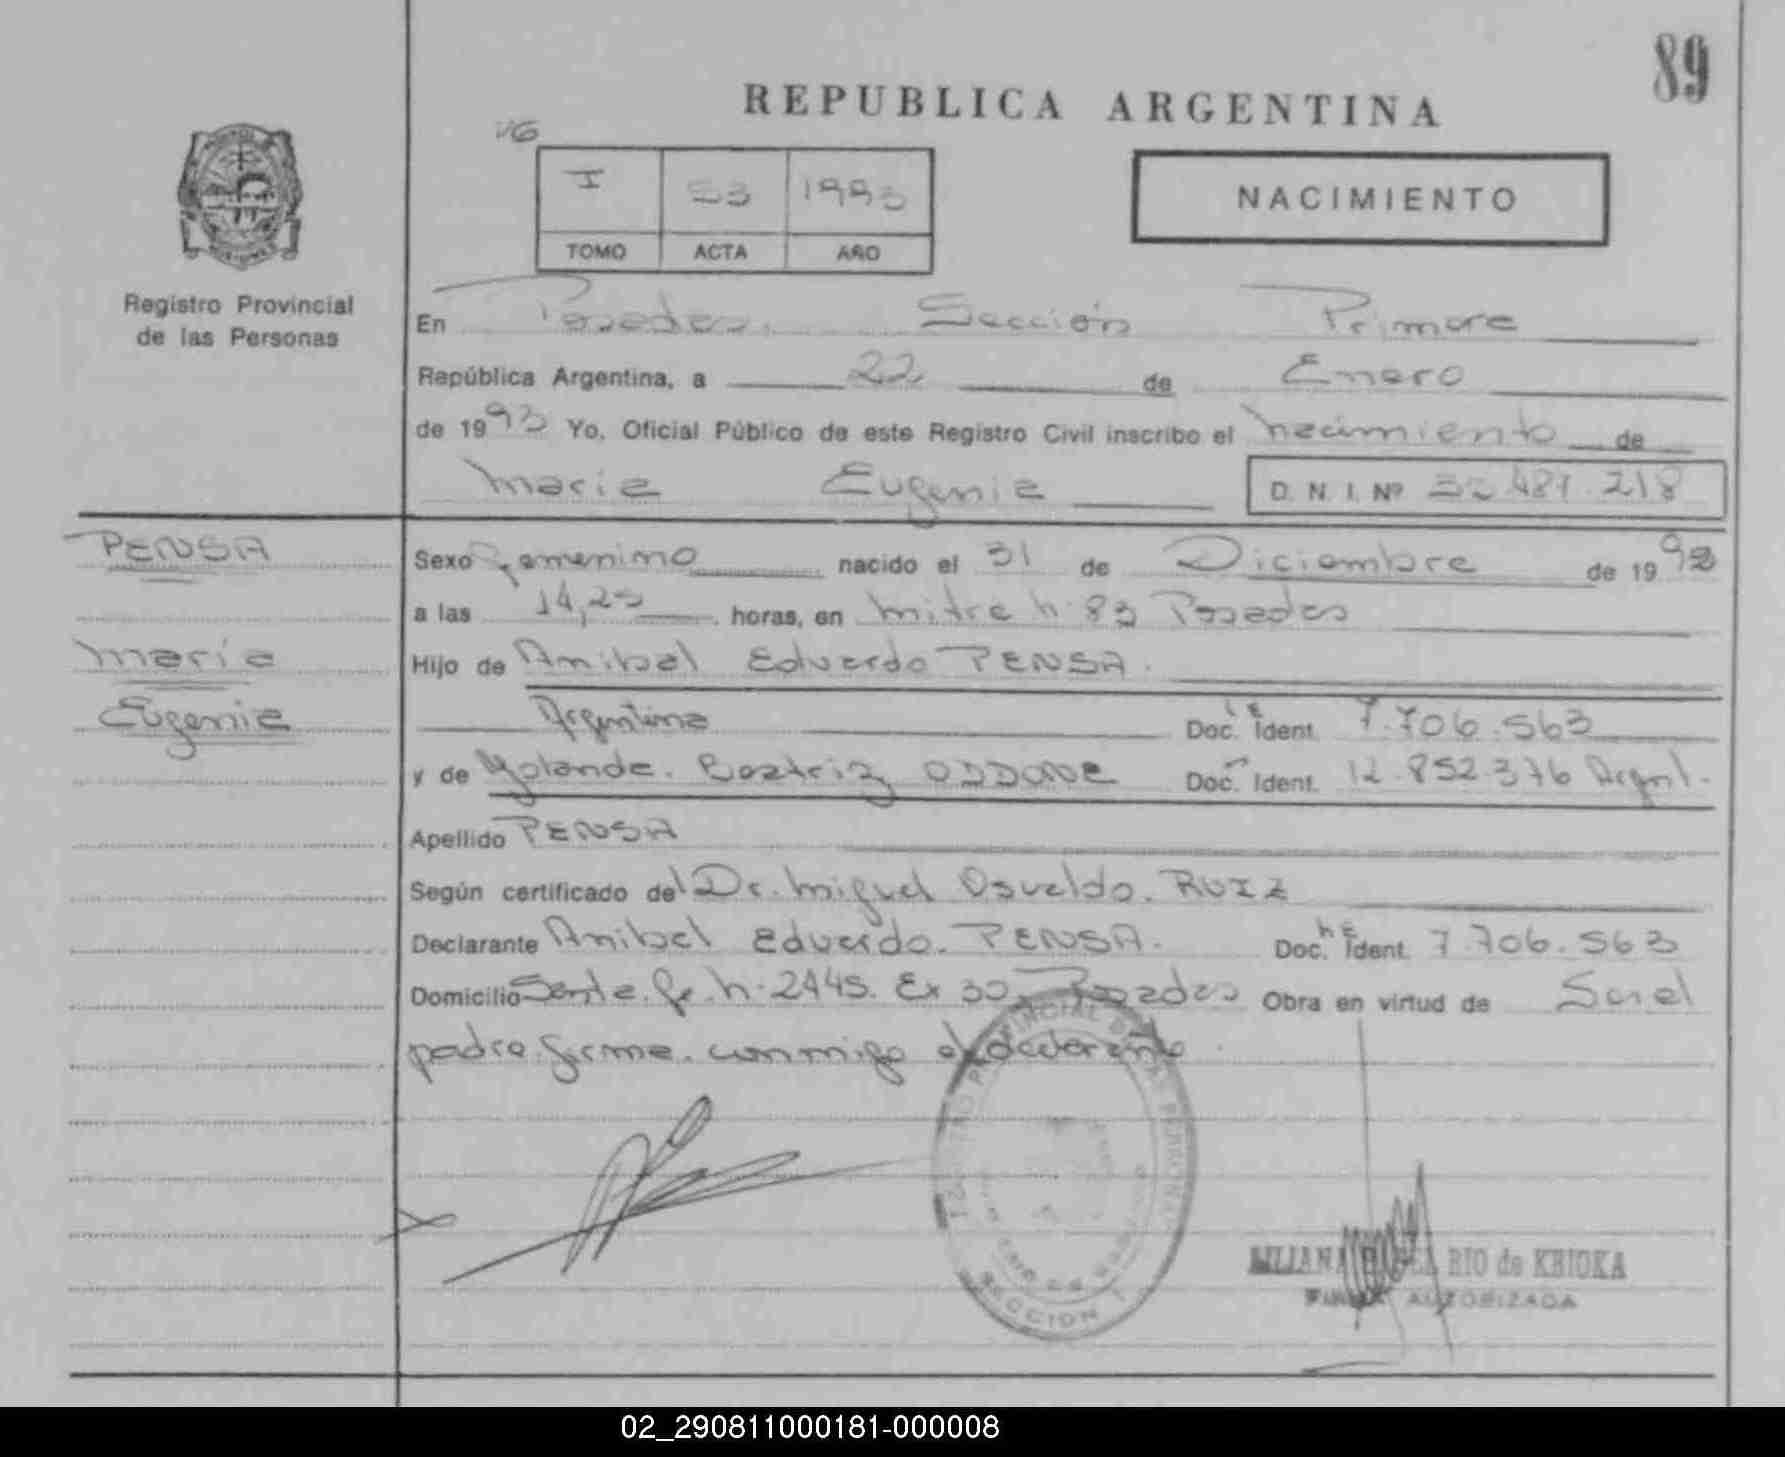 89
REPUBLICA ARGENTINA
I 53 1993
TOMO ACTA AÑO
NACIMIENTO
Registro Provincial
de las Personas
En Posadas, Sección Primera
República Argentina, a 22 de Enero
de 1993 Yo, Oficial Público de este Registro Civil inscribo el nacimiento de
María Eugenia D. N. I. Nº 487.218
PENSA
María
Eugenia
Sexo femenino nacido el 31 de Diciembre de 1992
a las 14,25 horas, en Mitre N. 83 Posadas
Hijo de Anibal Eduardo PENSA.
Argentina Doc. Ident. 7.706.563
y de Yolanda. Beatriz ODDONE Doc. Ident. 12.852.376 Argnt.
Apellido PENSA
Según certificado del Dr. Miguel Osvaldo. RUIZ
Declarante Anibal Eduardo. PENSA. Doc. Ident. 7.706.563
Domicilio Santa. Fe. N. 2445. Posadas Obra en virtud de Ser el
padre. firma. conmigo el declarante.
SECCION 1
RIO de KRIOKA
FIRMA AUTORIZADA
02_290811000181-000008